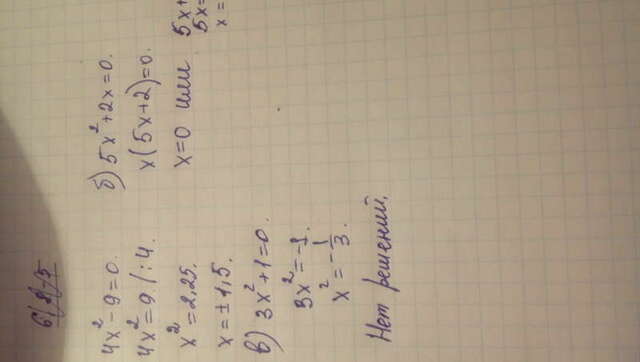 4x² - 9 = 0.
4x² = 9 /: 4.
x² = 2,25.
x = ± 1,5.
б) 5x² + 2x = 0.
x(5x+2) = 0.
x = 0 или 5x+
5x=
x =
в) 3x² + 1 = 0.
3x² = -1.
x² = -1/3.
Нет решений.